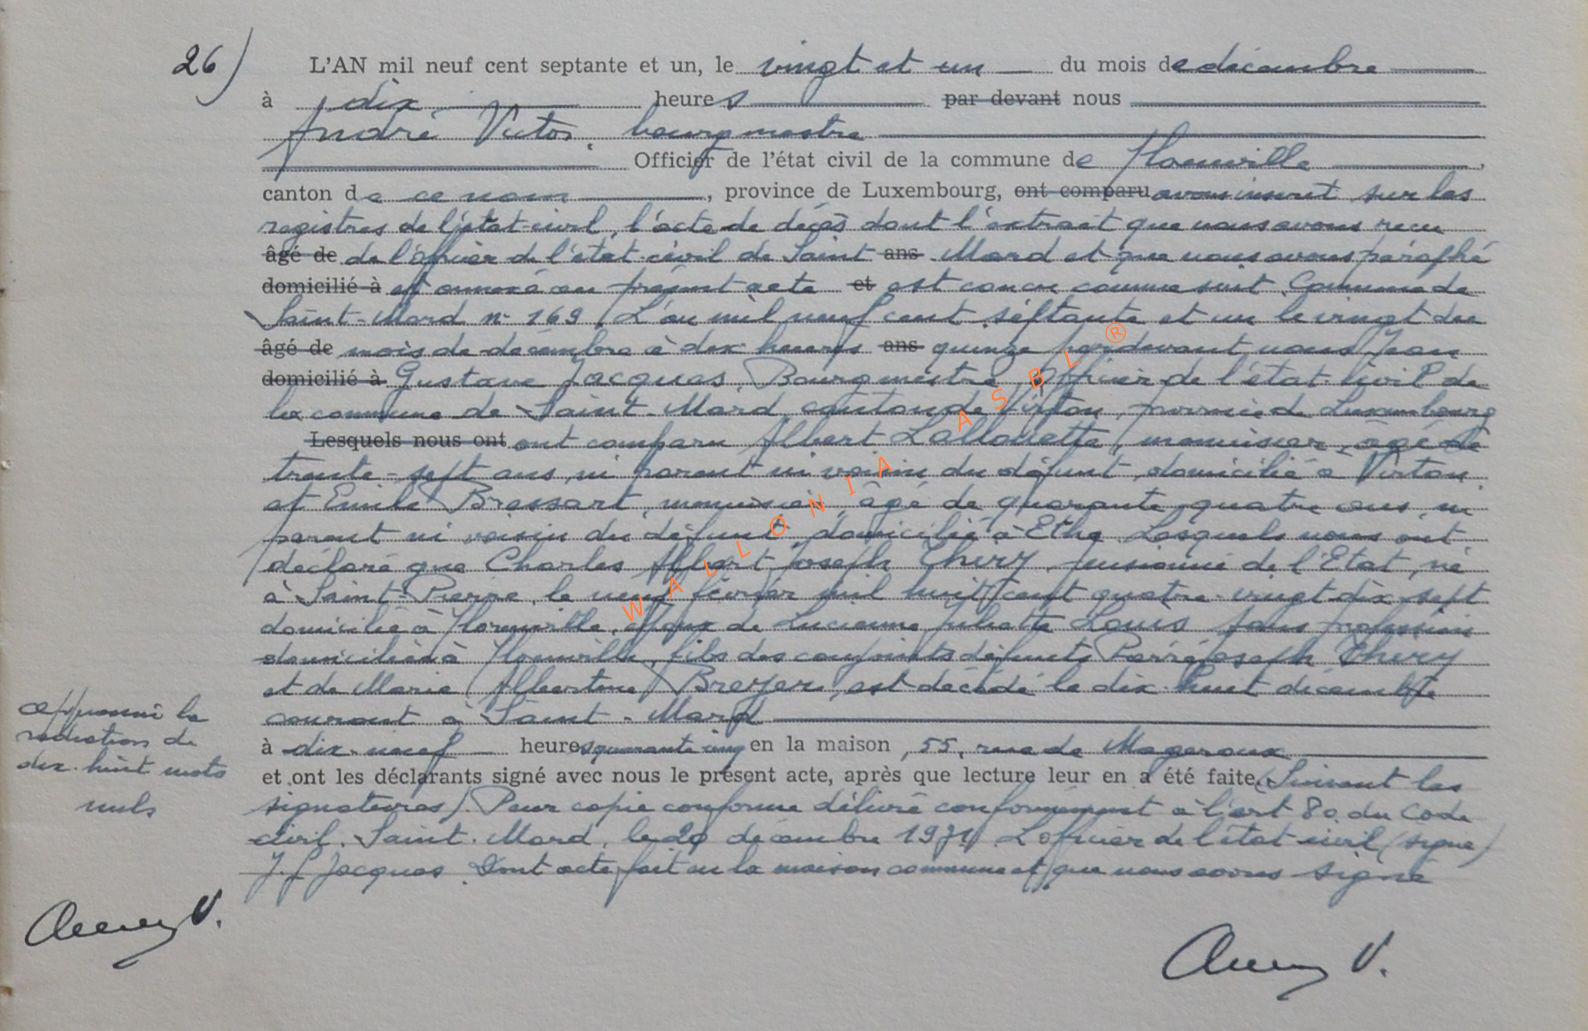 26) L'AN mil neuf cent septante et un, le vingt et un du mois de décembre
à dix heures par devant nous
André Victor, bourgmestre
Officier de l'état civil de la commune de Florenville,
canton de ce nom, province de Luxembourg, ont comparu avons inscrit sur les
registres de l'état-civil, l'acte de décès dont l'extrait que nous avons recu
âgé de de l'officier de l'état-civil de Saint ans Mard et que nous avons paraphé
domicilié à et annexé au présent acte et est concu comme suit. Commune de
Saint-Mard n° 169. L'an mil neuf cent septante et un le vingt du
âgé de mois de décembre à dix heures ans quinze par devant nous Jean
domicilié à Gustave Jacques Bourgmestre, Officier de l'état-civil de
la commune de Saint-Mard canton de Virton, province de Luxembourg
Lesquels nous ont ont comparu Albert Lallouette, menuisier, âgé de
trente-sept ans, ni parent ni voisin du défunt, domicilié à Virton
et Emile Bressart, menuisier, âgé de quarante-quatre ans, ni
parent ni voisin du défunt, domicilié à Ethe. Lesquels nous ont
déclaré que Charles Albert Joseph Thiry, pensionné de l'Etat, né
à Saint-Pierre, le neuf février mil huit cent quatre-vingt-dix-sept
domicilié à Florenville, époux de Lucienne Juliette Louis sans profession
domiciliée à Florenville, fils des conjoints défunts Joseph Thiry
et de Marie Albertine Breyer, est décédé le dix huit décembre
courant à Saint-Mard
à dix-neuf heures quarante cinq en la maison, 55, rue de Mageroux
et ont les déclarants signé avec nous le présent acte, après que lecture leur en a été faite. (Suivent les
signatures). Pour copie conforme délivré conformément à l'art 80 du Code
civil. Saint-Mard, le 20 décembre 1971. L'officier de l'état-civil (signé)
J. G. Jacques. Dont acte fait en la maison commune et que nous avons signé
approuvé la
radiation de
dix-huit mots
nuls
V.
V.
WALLONIA ASBL ®